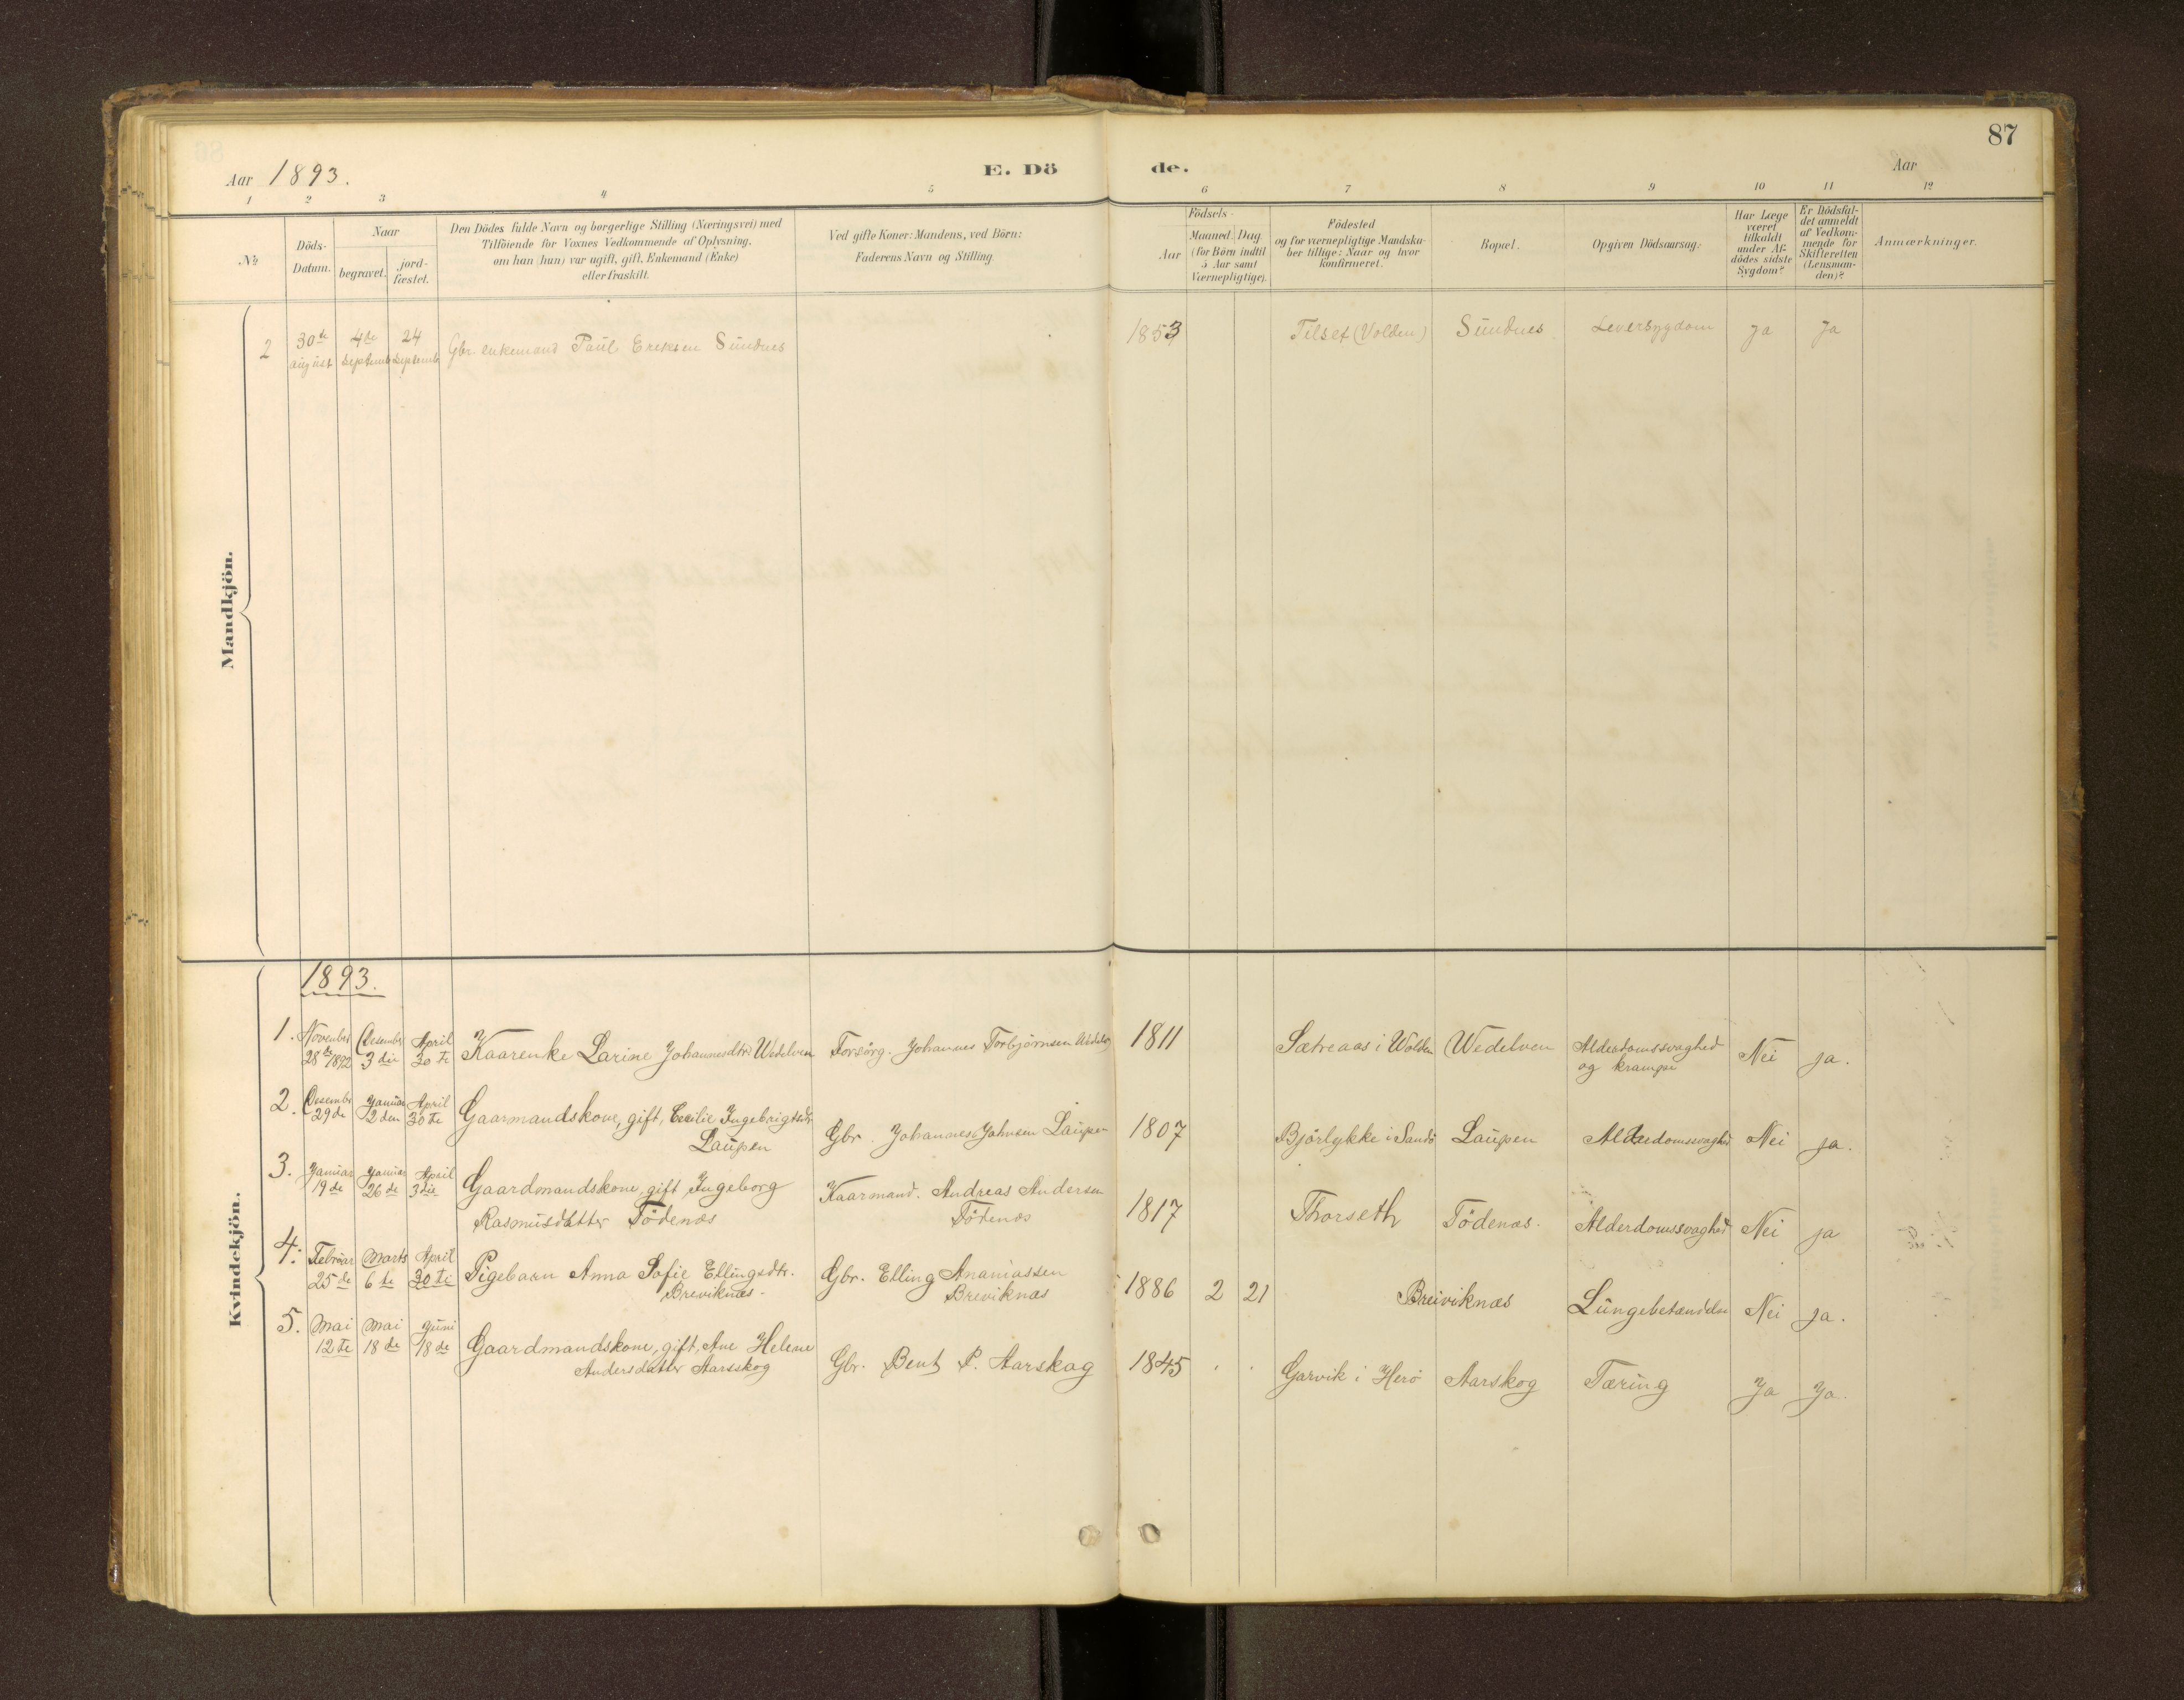 87
Aar 1893. E. Dö de. Aar
1 2 3 4 5 6 7 8 9 10 11 12
No
Döds-
Datum.
Naar
begravet.
jord-
fæstet.
Den Dödes fulde Navn og borgerlige Stilling (Næringsvei) med
Tilföiende for Voxnes Vedkommende af Oplysning,
om han (hun) var ugift, gift, Enkemand (Enke)
eller fraskilt.
Ved gifte Koner: Mandens, ved Börn:
Faderens Navn og Stilling.
Födsels-
Aar
Maaned. Dag.
(for Börn indtil
5 Aar samt
Værnepligtige).
Födested
og for værnepligtige Mandska-
ber tillige: Naar og hvor
konfirmeret.
Bopæl.
Opgiven Dödsaarsag:
Har Læge
været
tilkaldt
under Af-
dödes sidste
Sygdom?
Er Dödsfal-
det anmeldt
af Vedkom-
mende for
Skifteretten
(Lensman-
den)?
Anmærkninger.
Mandkjön.
2 30de august 4de Septemb 24 Septemb Gbr. enkemand Paul Eriksen Sundnes 1853 Tilset (Volden) Sundnes Leversygdom Ja Ja
Kvindekjön.
1893.
1. November 28de 1892 Desember 3die April 30te Kaarenke Larine Johannesdtr Wedelven Forsörg. Johannes Torbjörnsen 1811 Sætreaas i Wolden Wedelven Alderdomssvaghed
og krampe Nei ja.
2. Desembr 29de Januar 2den April 30te Gaarmandskone, gift, Cecilie Ingebrigtsdtr
Laupen Gbr. Johannes Johnsen Laupen 1807 Björlykke i Sandö Laupen Alderdomssvaghed Nei ja.
3. Januar 19de Januar 26de April 3die Gaardmandskone, gift Ingeborg
Rasmusdatter Tödenæs Kaarmand. Andreas Andersen
Tödenæs 1817 Thorseth Tödenæs. Alderdomssvaghed Nei ja
4. Februar 25de Marts 6te April 30te Pigebarn Anna Sofie Ellingsdtr.
Breviknæs. Gbr. Elling Ananiassen
Breviknæs 1886 2 21 Breiviknæs Lungebetændelse Nei ja.
5. Mai 12te Mai 18de Juni 18de Gaardmandskone, gift, Ane Helene
Andersdatter Aarsskog Gbr. Bent P. Aarskog 1845 Garvik i Herö Aarskog Tæring Ja Ja.